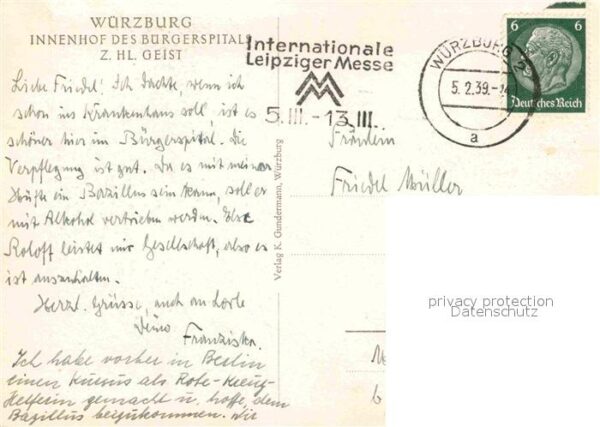 WÜRZBURG
INNENHOF DES BÜRGERSPITALS
Z. HL. GEIST
Liebe Friedel! Ich dachte, wenn ich
schon ins Krankenhaus soll, ist es
schöner hier im Bürgerspital. Die
Verpflegung ist gut. Da es mit meiner
Hüfte ein Bazillus sein kann, soll er
mit Alkohol vertrieben werden. Else
Roloff leistet mir Gesellschaft, also es
ist auszuhalten.
Herzl. Grüsse, auch an Lorle
Deine
Franziska.
Ich habe vorher in Berlin
einen Kursus als Rote-Kreuz-
Helferin gemacht u. hoffe, dem
Bazillus beizukommen. Wie
Verlag K. Gundermann, Würzburg
Internationale
Leipziger Messe
MM
5.III.-13.III.
WÜRZBURG 2
5.2.39.-
a
6 6
Deutsches Reich
Fräulein
Friedel Müller
privacy protection
Datenschutz